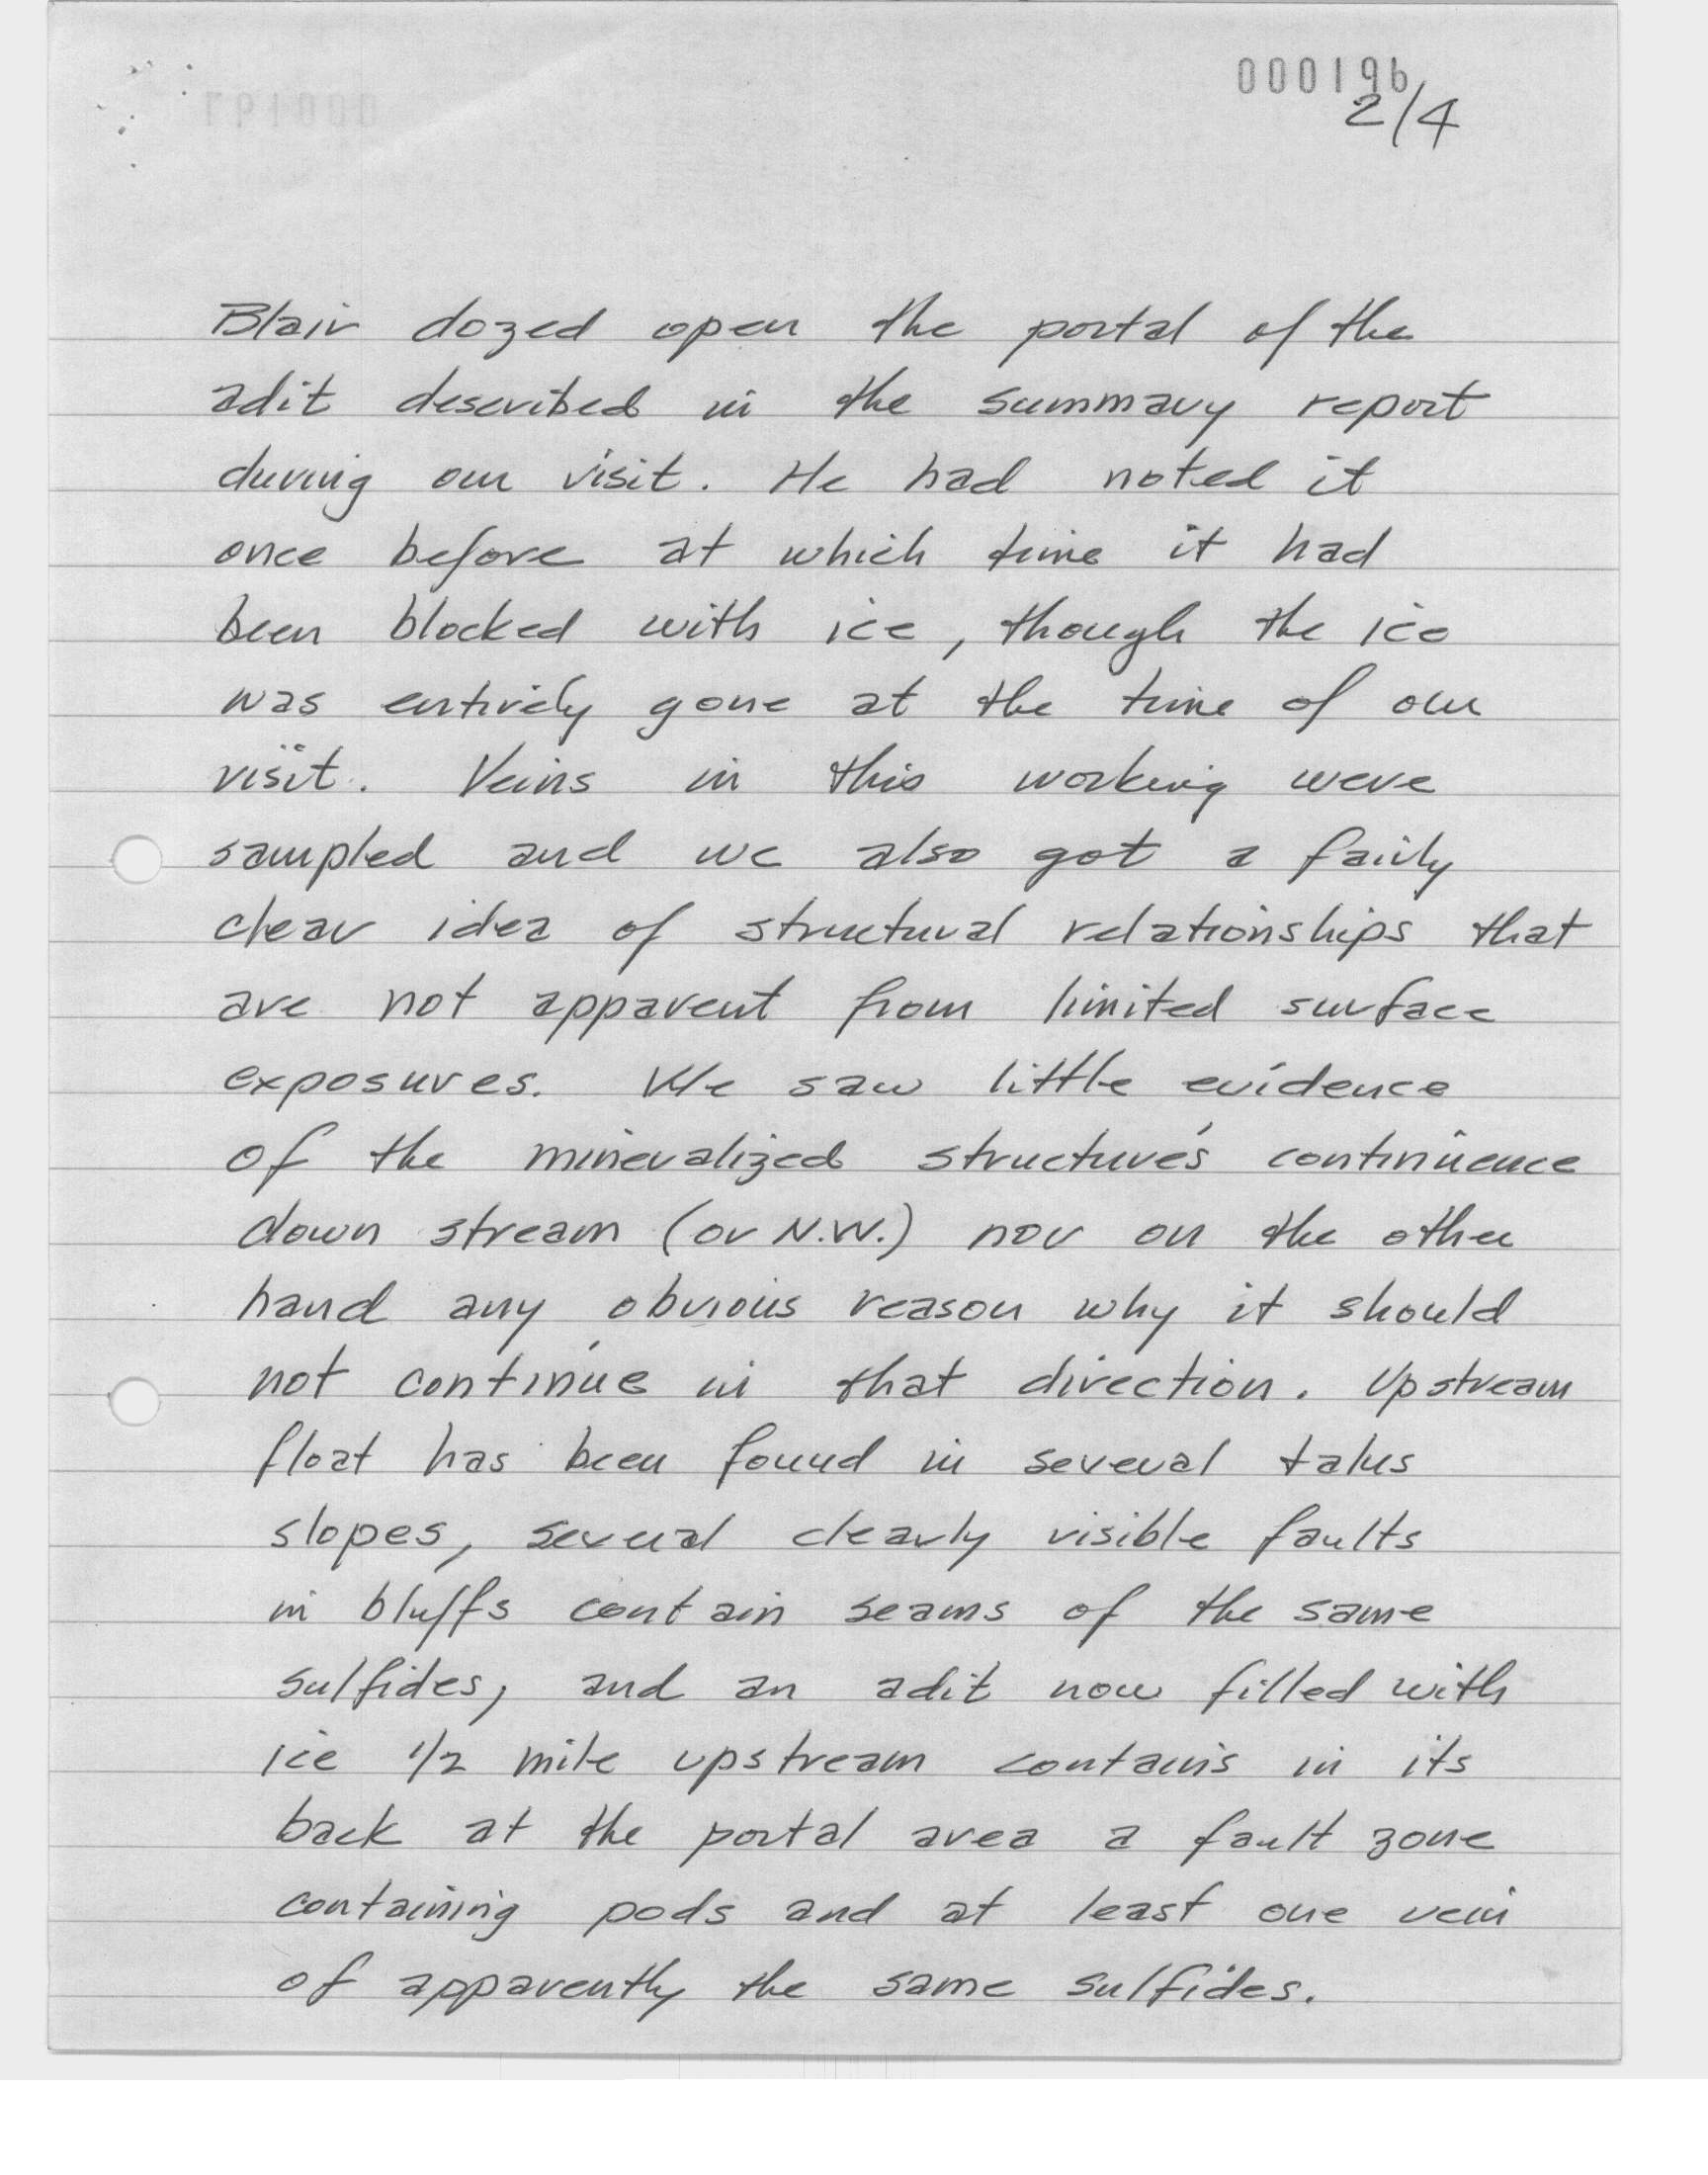 000196
2/4
Blair dozed open the portal of the
adit described in the summary report
during our visit. He had noted it
once before at which time it had
been blocked with ice, though the ice
was entirely gone at the time of our
visit. Veins in this working were
sampled and we also got a fairly
clear idea of structural relationships that
are not apparent from limited surface
exposures. We saw little evidence
of the mineralized structure's continuence
down stream (or N.W.) nor on the other
hand any obvious reason why it should
not continue in that direction. Upstream
float has been found in several talus
slopes, several clearly visible faults
in bluffs contain seams of the same
sulfides, and an adit now filled with
ice 1/2 mile upstream contains in its
back at the portal area a fault zone
containing pods and at least one vein
of apparently the same sulfides.